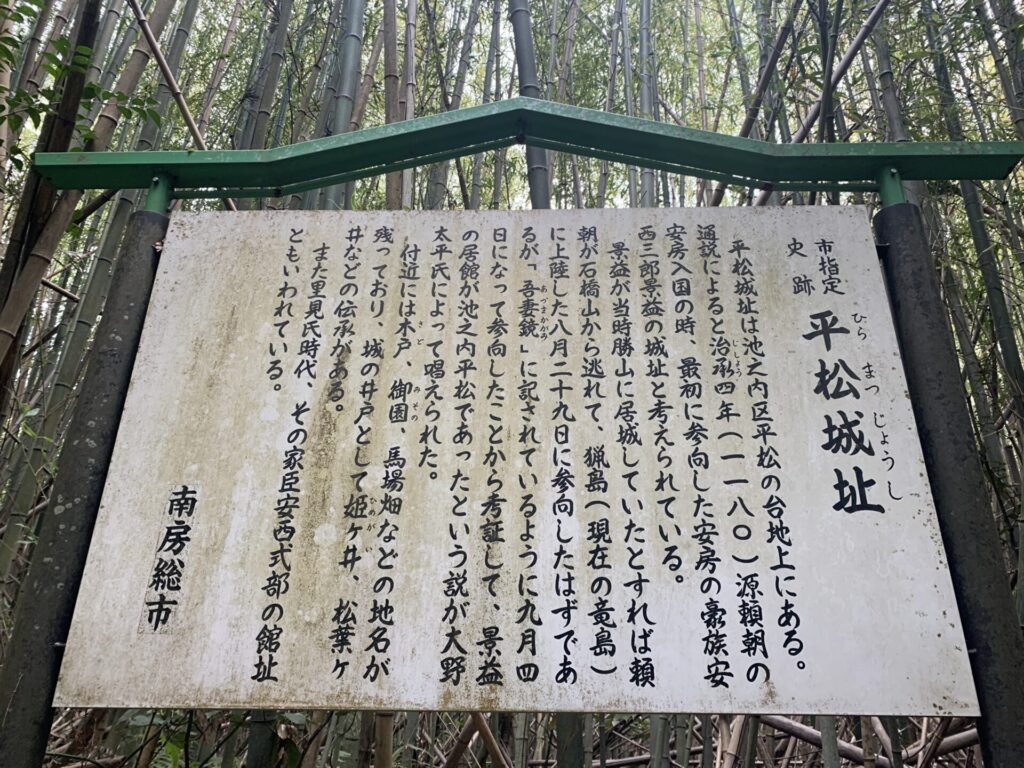 市指定
史跡
平松城址
ひら まつ じょうし
平松城址は池之内区平松の台地上にある。
通説によると治承四年(一一八〇)源頼朝の
じしょう
安房入国の時、最初に参向した安房の豪族安
西三郎景益の城址と考えられている。
景益が当時勝山に居城していたとすれば頼
朝が石橋山から逃れて、猟島(現在の竜島)
に上陸した八月二十九日に参向したはずであ
るが「吾妻鏡」に記されているように九月四
あづまかがみ
日になって参向したことから考証して、景益
の居館が池之内平松であったという説が大野
太平氏によって唱えられた。
付近には木戸、御園、馬場畑などの地名が
きど みその
残っており、城の井戸として姫ヶ井、松葉ヶ
ひめが
井などの伝承がある。
また里見氏時代、その家臣安西式部の館址
ともいわれている。
南房総市